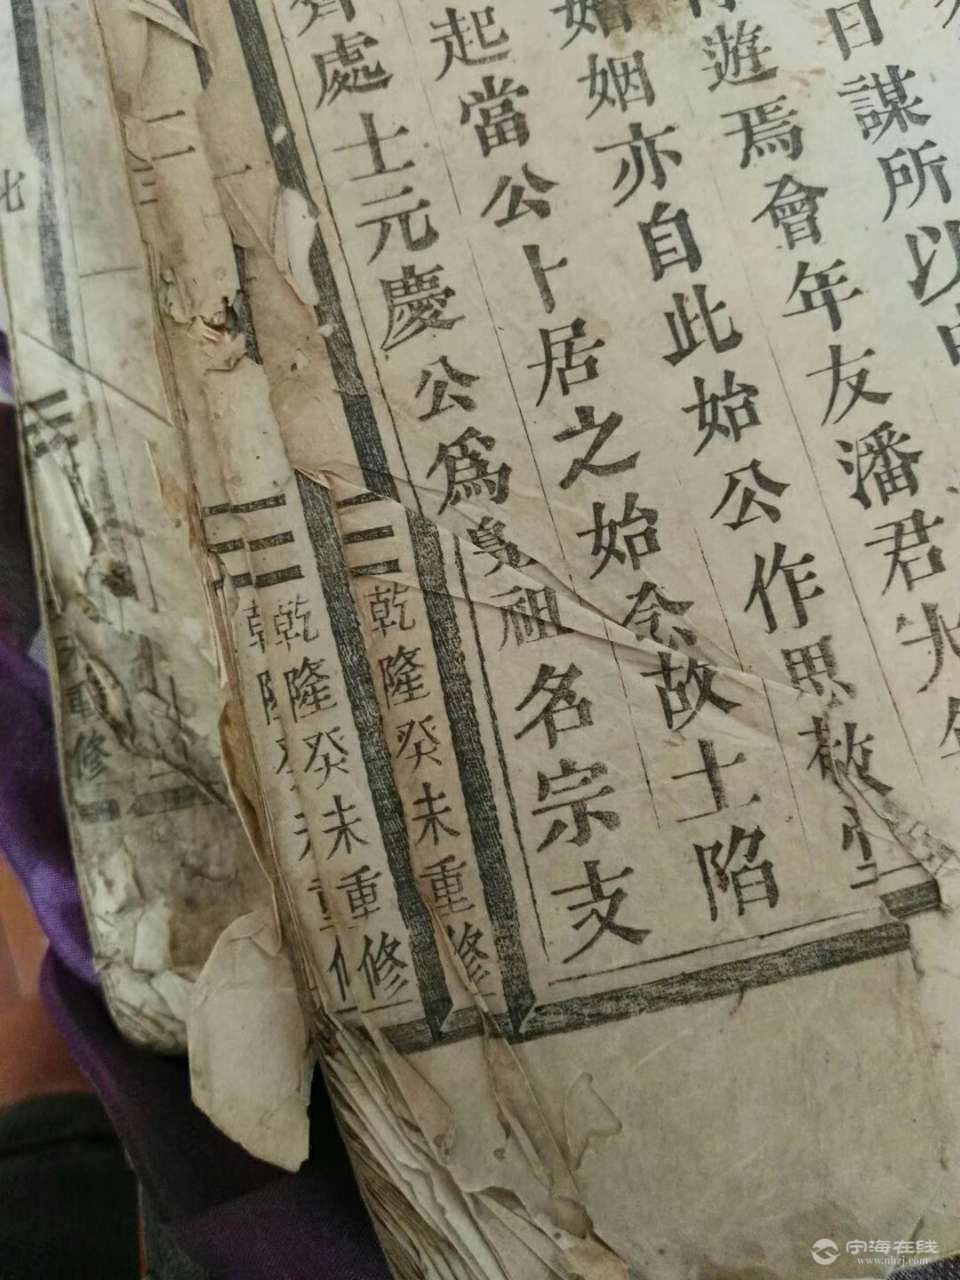 日謀所以
遊焉會年友潘君
婚姻亦自此始公作思敬
起當公卜居之始念故土陷
齊處士元慶公為鼻祖名宗支
乾隆癸未重修
乾隆癸未重修
修
宁海在线
www.nhzj.com